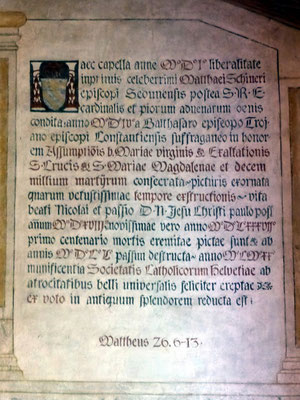 Haec capella anno M°D°I° liberalitate
inprimis celeberrimi Matthaei Schineri
episcopi Sedunensis postea S·R·E
cardinalis et piorum advenarum donis
condita·anno M°D°IV° a Balthasaro episcopo Troj
ano episcopi Constantiensis suffraganeo in honor
em Assumptiois b. Mariae virginis & Exaltationis
S·Crucis & S·Mariae Magdalenae et decem
millium martyrum consecrata·picturis exornata
quarum vetustissimae tempore exstructionis·vita
beati Nicolai et passio D·N·Jesu Christi paulo post
annum novissimae vero anno
primo centenario mortis eremitae pictae sunt & ab
annis passim destructa·anno
munificentia Societatis Catholicorum Helvetiae ab
atrocitatibus belli universalis feliciter ereptae
ex voto in antiquum splendorem reducta est·
Mattheus 26. 6-13·